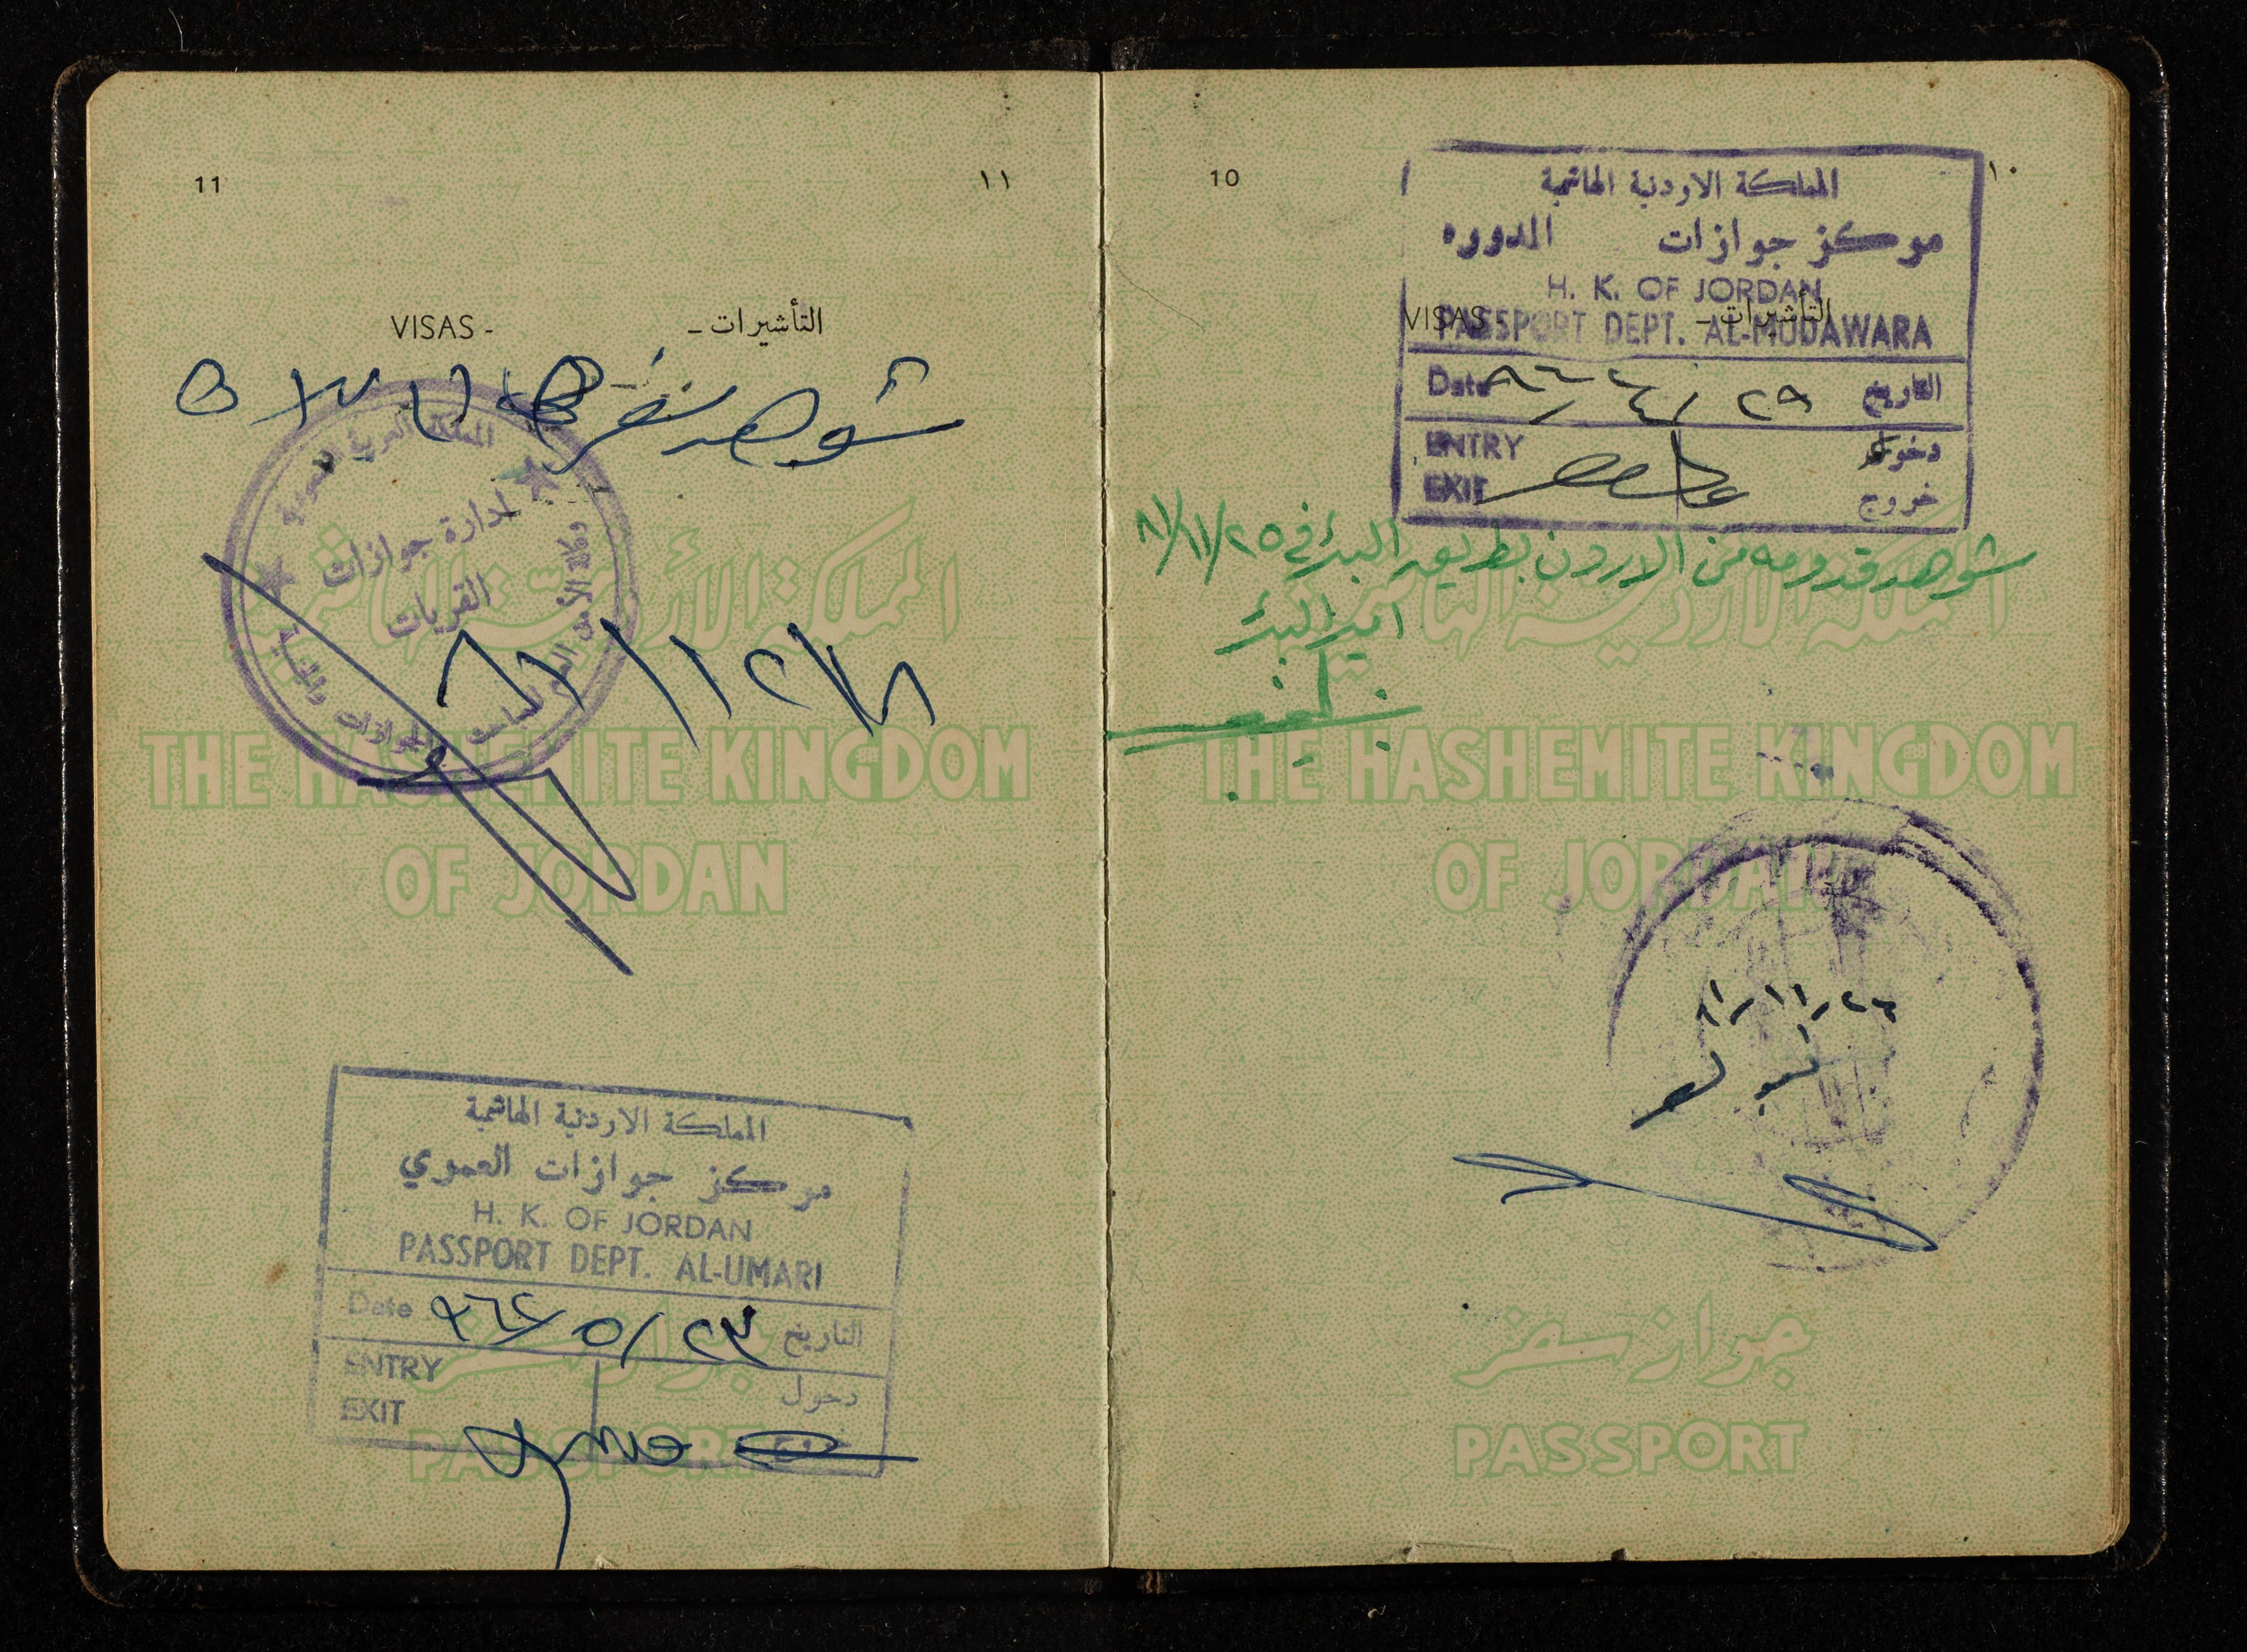 10
١٠
المملكة الاردنية الهاشمية
مركز جوازات المدوره
H. K. OF JORDAN
VISAS - التأشيرات -
PASSPORT DEPT. AL-MUDAWARA
Date ٢٩ / ٤ / ٩٦٢ التاريخ
ENTRY دخول
EXIT خروج
شوهد قدومه من الاردن بطريق البر في ٢٥/١١/٨١
امير البدع
المملكة الأردنية الهاشمية
THE HASHEMITE KINGDOM
OF JORDAN
٢٦/١١/٨١
جواز سفر
PASSPORT
11
١١
VISAS - التأشيرات -
شوهد سفره
المملكة العربية السعودية
ادارة جوازات
القريات
المملكة الأردنية الهاشمية
THE HASHEMITE KINGDOM
OF JORDAN
المملكة الاردنية الهاشمية
مركز جوازات العمري
H. K. OF JORDAN
PASSPORT DEPT. AL-UMARI
Date ٢٣ / ٥ / ٩٦٢ التاريخ
ENTRY دخول
EXIT
جواز سفر
PASSPORT